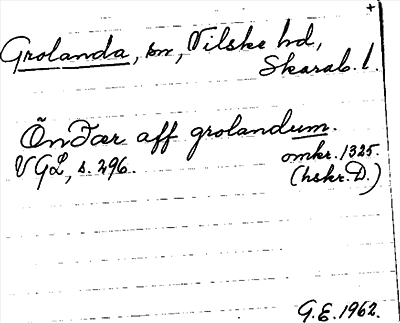 +
Grolanda, sn, Vilske hd,
Skarab. l.
Önðær aff grolandum.
VGL, s. 296. omkr. 1325.
(hskr. D.)
G.E. 1962.